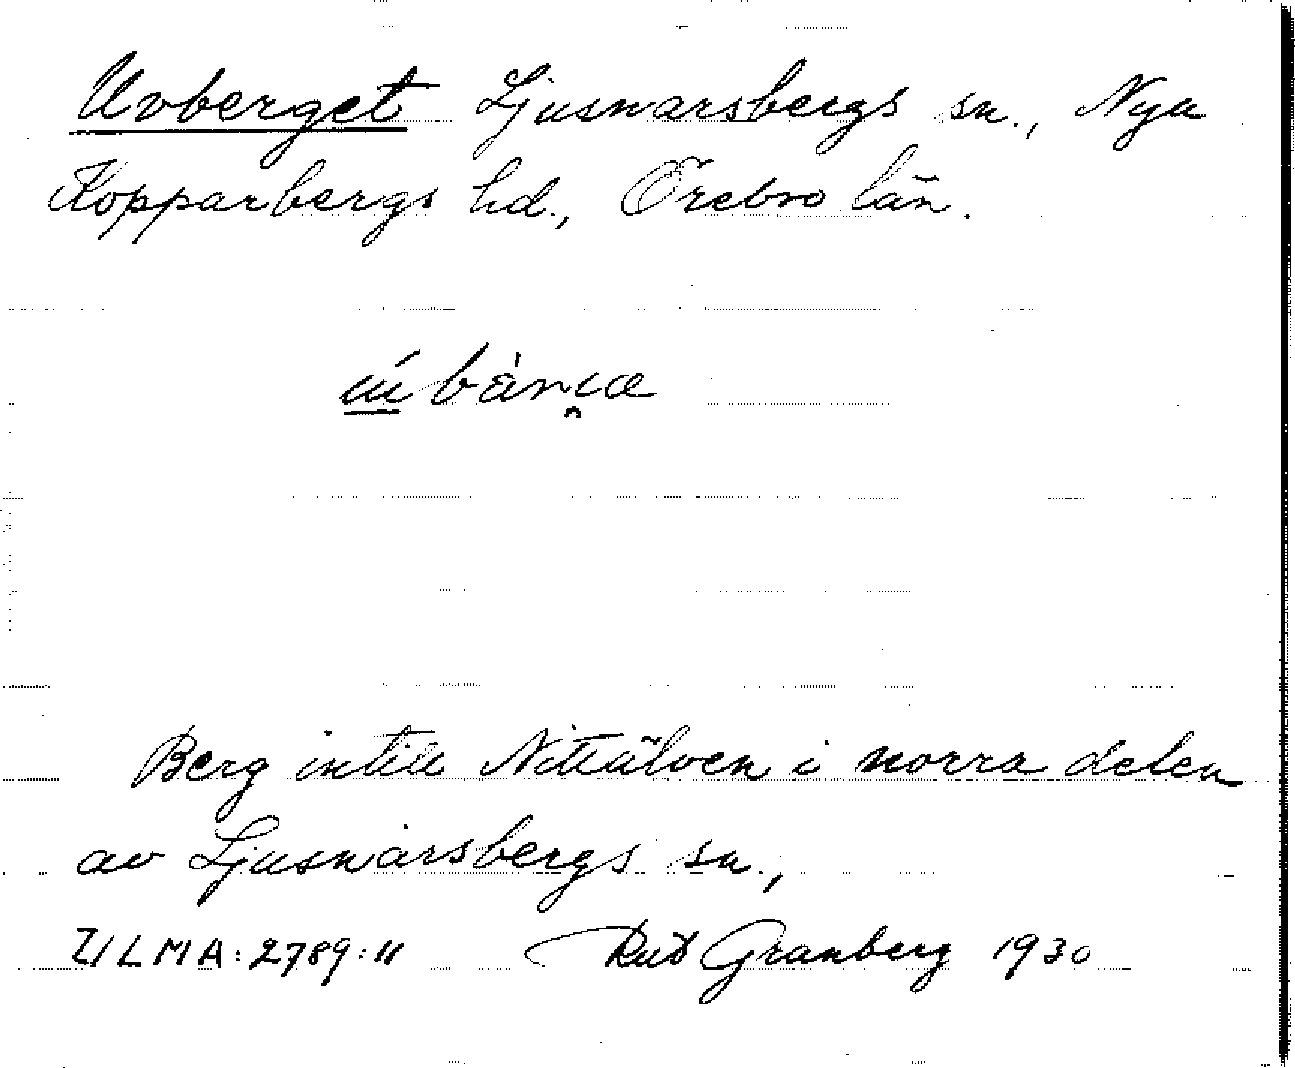 Uvberget Ljusnarsbergs sn., Nya
Kopparbergs hd., Örebro län.
Berg intill Nittälven i norra delen
av Ljusnarsbergs sn.,
ULMA: 2789:11 Rut Granberg 1930